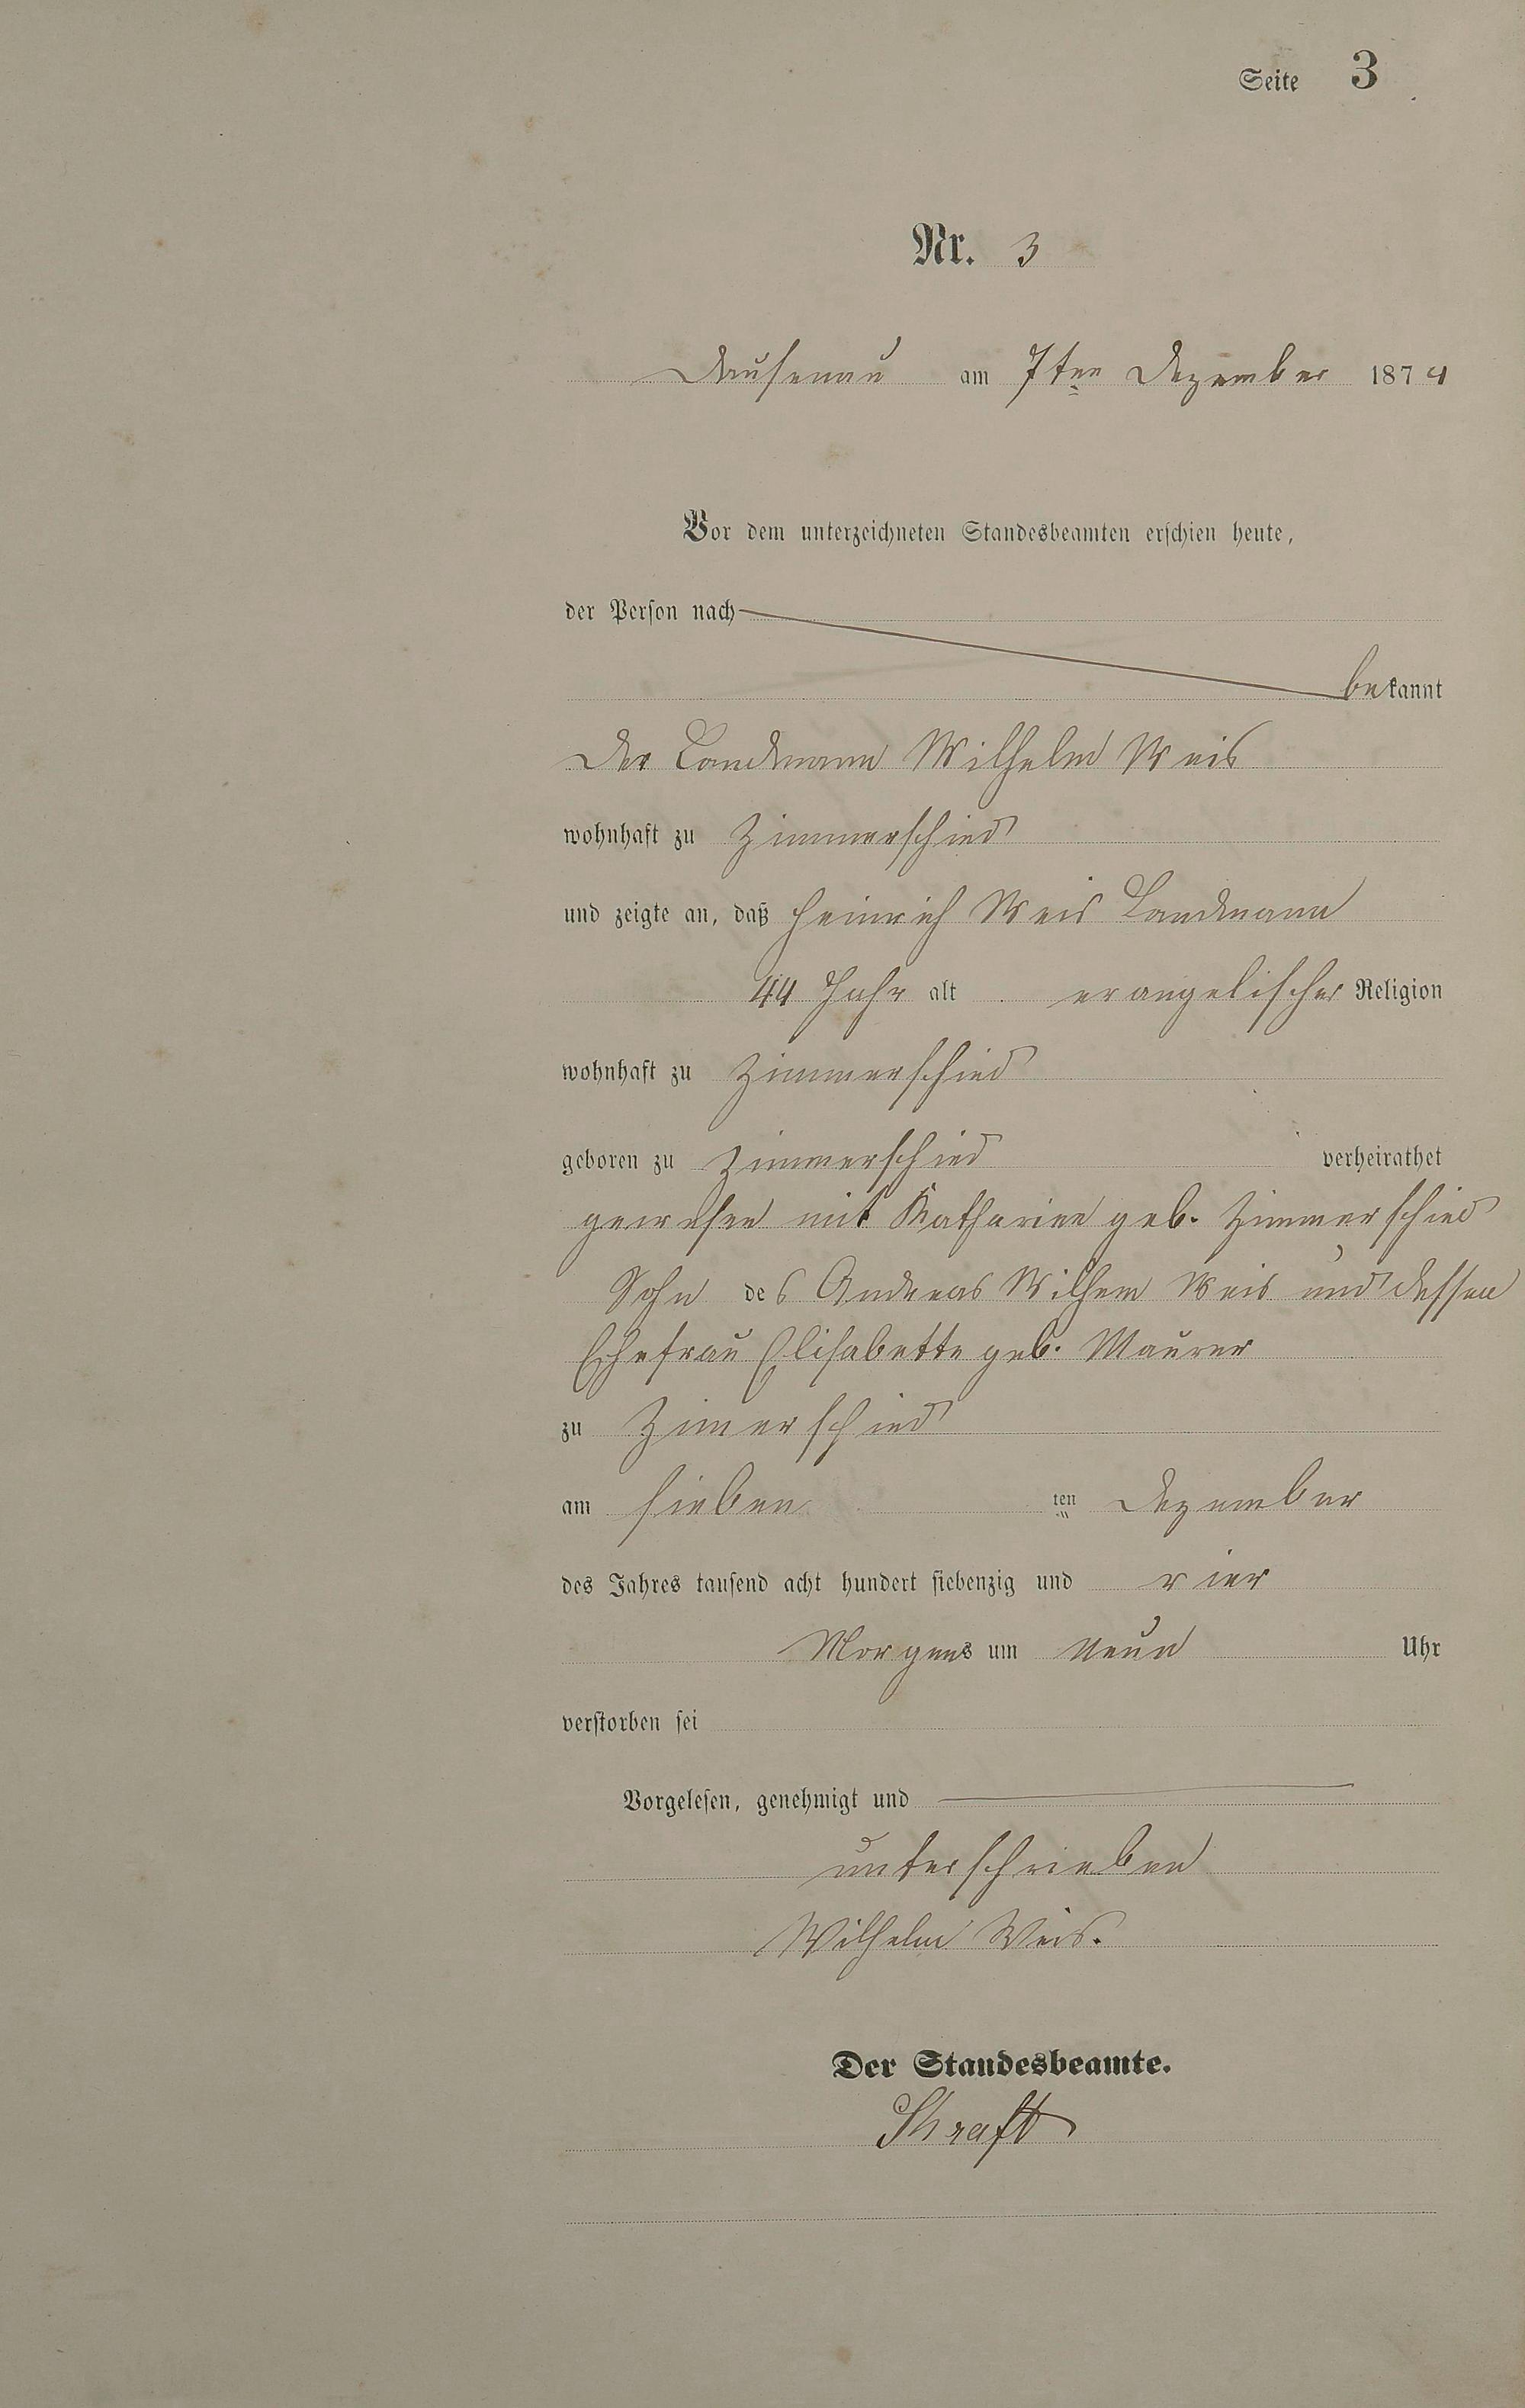 Seite 3
Nr. 3
Dausenau am 7ten Dezember 1874
Vor dem unterzeichneten Standesbeamten erschien heute,
der Person nach
bekannt
Der Landmann Wilhelm Weis
wohnhaft zu Zimmerschied
und zeigte an, daß Heinrich Weis Landmann
44 Jahr alt evangelischer Religion
wohnhaft zu Zimmerschied
geboren zu Zimmerschied verheirathet
gewesen mit Katharine geb. Zimmerschied
Sohn des Andreas Wilhem Weis und dessen
Ehefrau Elisabette geb. Maurer
zu Zimerschied
am sieben ten Dezember
des Jahres tausend acht hundert siebenzig und vier
Morgens um neun Uhr
verstorben sei
Vorgelesen, genehmigt und
unterschrieben
Wilhelm Weis.
Der Standesbeamte.